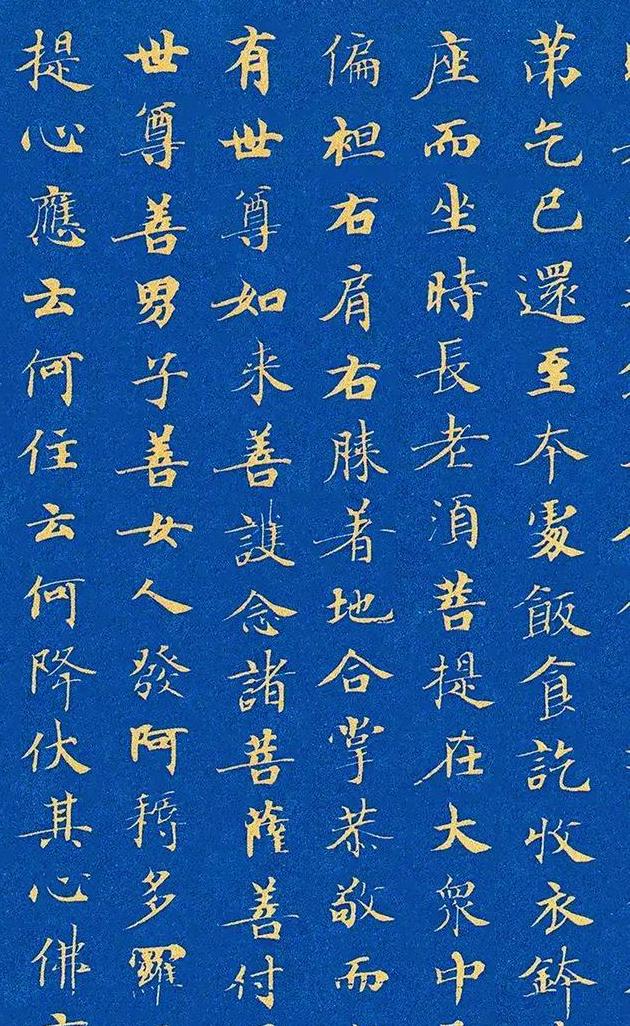 苐乞已還至本處飯食訖收衣鉢
座而坐時長老湏菩提在大衆中
偏袒右肩右膝着地合掌恭敬而
有世尊如来善護念諸菩薩善付
世尊善男子善女人發阿耨多羅
提心應云何住云何降伏其心佛